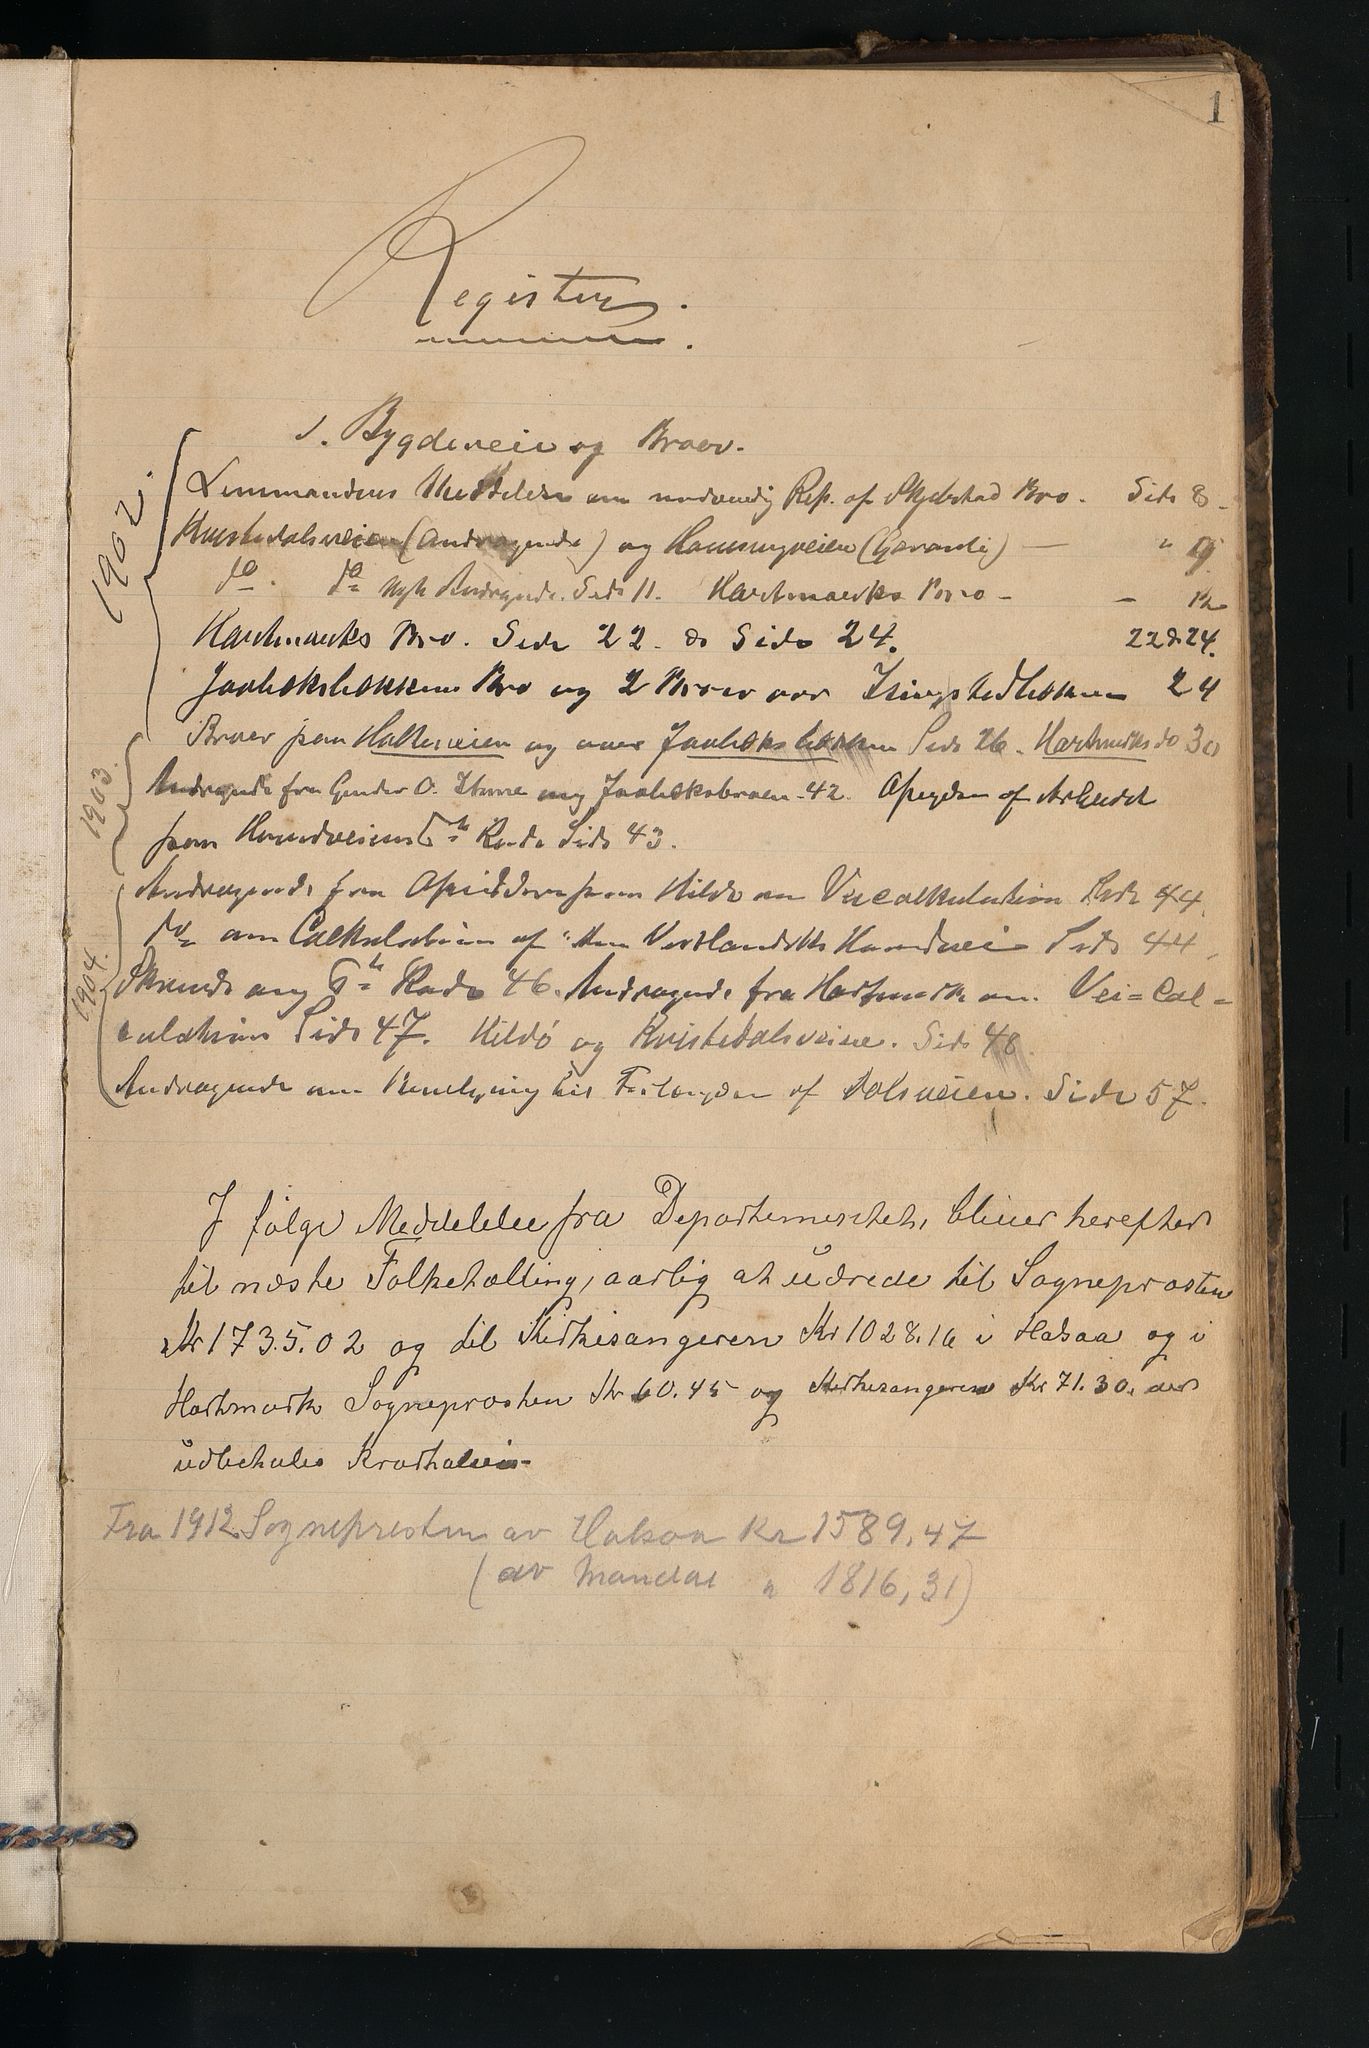 1
Register.
1. Bygdeveie og Broer.
1902.
Lensmandens Meddelelse om nødvendig Rep. af Skjebstad Bro. Side 8.
Kvistedalsveien (Andragende) og Hausvigveien (Garanti) — " 9.
do. do nyt Andragende. Side 11. Hartmarks Bro - -
Hartmarks Bro. Side 22. do Side 24. 22 & 24.
Jaabæksbækkens Bro og 2 Broer over 24
Broer paa Holteveien og over Jaabæksbækken Side 26. Hartmarks do 30
1903.
Andragende fra Gunder O. ang Jaabæksbroen. 42. Opsigelse af Arbeidet
paa Hovedveiens 5te Rode Side 43.
1904.
Andragende fra Opsidderne paa Hilde om Veicalkulation Side 44.
do om Calkulation af den Vestlandske Hovedvei Side 44,
Skrivelse ang 5te Rode 46. Andragende fra Hartmark om Vei=Cal=
culation Side 47. Hildø og Kvistedalsveiene. Side 48.
Andragende om Bevilgning til Forlængelse af Dalsveien. Side 57.
I følge Meddelelse fra Departementet, bliver herefter
til næste Folketælling, aarlig at udrede til Sognepresten
Kr 1735.02 og til Kirkesangeren Kr 1028.16 i Halsaa og i
Hartmark Sognepresten Kr 60.45 og Kirkesangeren Kr 71.30, der
udbetales Kvartalsvis.
Fra 1912 Sognepresten av Halsaa Kr 1589,47
(av Mandal " 1816,31)